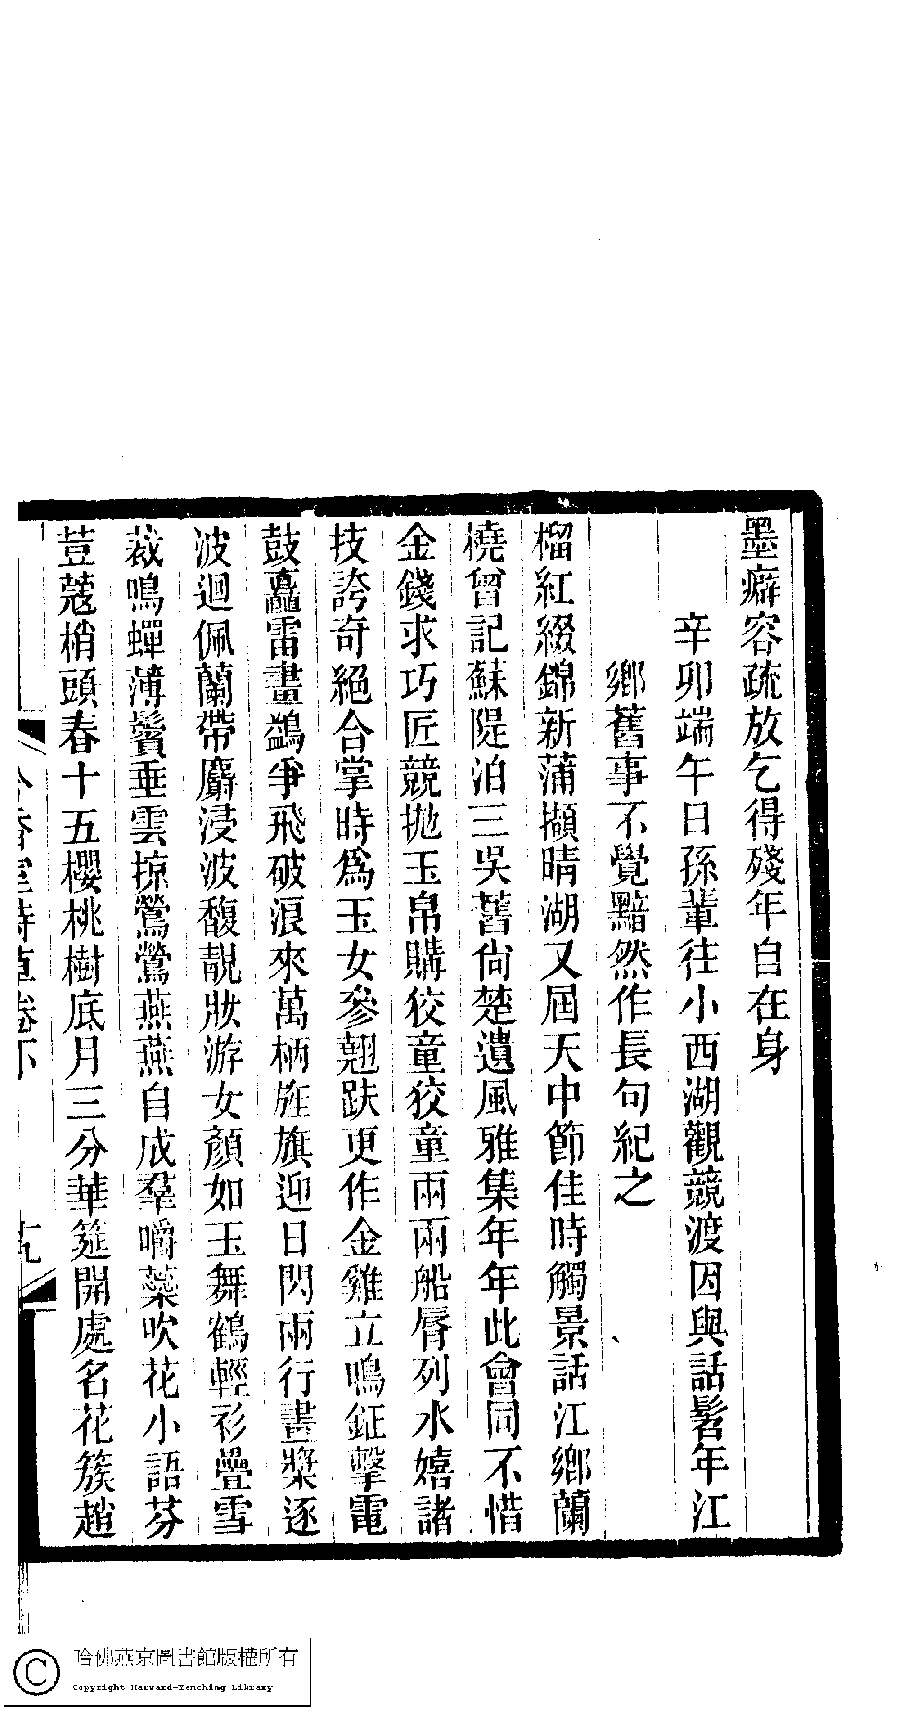 墨癖容疏放乞得殘年自在身
辛卯端午日孫輩往小西湖觀競渡因與話髫年江
鄉舊事不覺黯然作長句紀之
榴紅綴錦新蒲擷晴湖又屆天中節佳時觸景話江鄉蘭
橈曾記蘇隄泊三吳舊尙楚遺風雅集年年此會同不惜
金錢求巧匠競拋玉帛購狡童狡童兩兩船脣列水嬉諸
技誇奇絕合掌時爲玉女參翹趺更作金雞立鳴鉦擊電
鼓轟雷畫鷁爭飛破浪來萬柄旌旗迎日閃兩行畫槳逐
波迴佩蘭帶麝浸波馥靚妝游女顏如玉舞鶴輕衫疊雪
裁鳴蟬薄鬢垂雲掠鶯鶯燕燕自成羣嚼蘂吹花小語芬
荳蔻梢頭春十五櫻桃樹底月三分華筵開處名花簇趙
香室詩草卷下
哈佛燕京圖書館版權所有
Copyright Harvard-Yenching Library